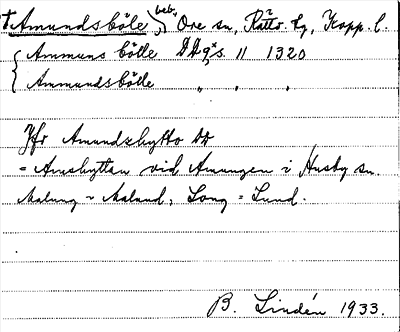 †Amundsböle beb. Ore sn, Rättv. tg, Kopp. l.
Ammuns bölle DD 93 s. 11 1320
Ammundsbölle " " "
Jfr Amundzhytto DD
= Amshyttan vid Amungen i Husby sn.
Malung ~ Malund, Long = Lund.
B. Lindén 1933.